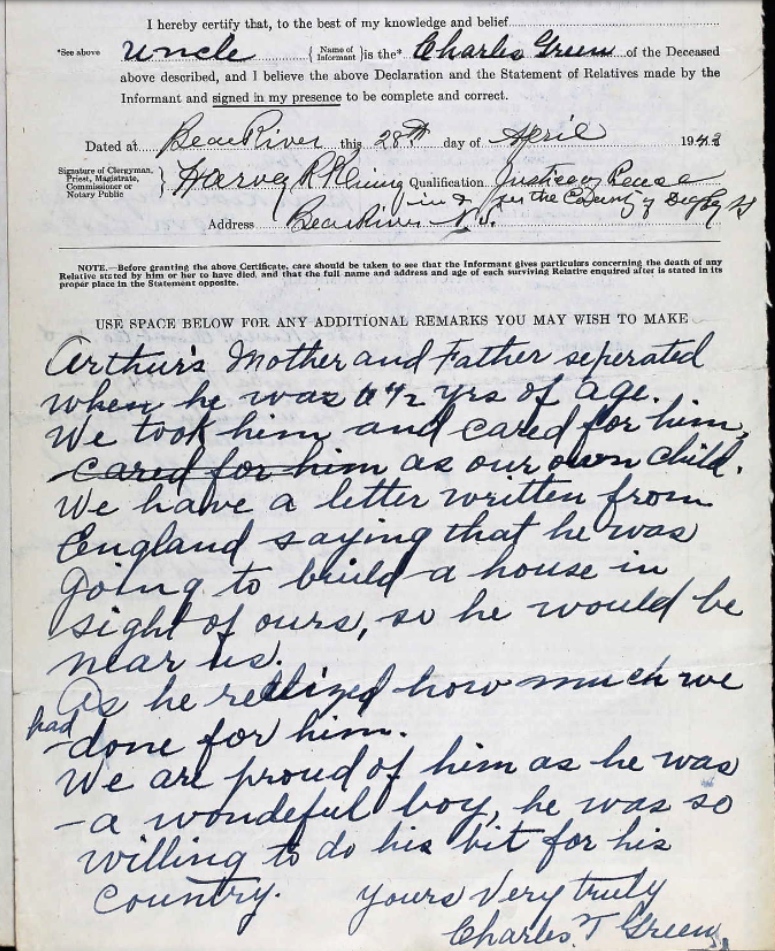 I hereby certify that, to the best of my knowledge and belief
*See above uncle { Name of Informant } is the* Charles Green of the Deceased
above described, and I believe the above Declaration and the Statement of Relatives made by the
Informant and signed in my presence to be complete and correct.
Dated at Bear River this 28th day of April 1943
Signature of Clergyman, Priest, Magistrate, Commissioner or Notary Public } Harvey R Qualification Justice of Peace
in & for the County of Digby NS
Address Bear River N.S.
NOTE.—Before granting the above Certificate, care should be taken to see that the Informant gives particulars concerning the death of any
Relative stated by him or her to have died, and that the full name and address and age of each surviving Relative enquired after is stated in its
proper place in the Statement opposite.
USE SPACE BELOW FOR ANY ADDITIONAL REMARKS YOU MAY WISH TO MAKE
Arthur's Mother and Father seperated
when he was 4½ yrs of age.
We took him and cared for him,
cared for him as our own child.
We have a letter written from
England saying that he was
going to build a house in
sight of ours, so he would be
near us.
As he relized how much we
had done for him.
We are proud of him as he was
a wondeful boy, he was so
willing to do his bit for his
Country. Yours Very truly
Charles T Green,